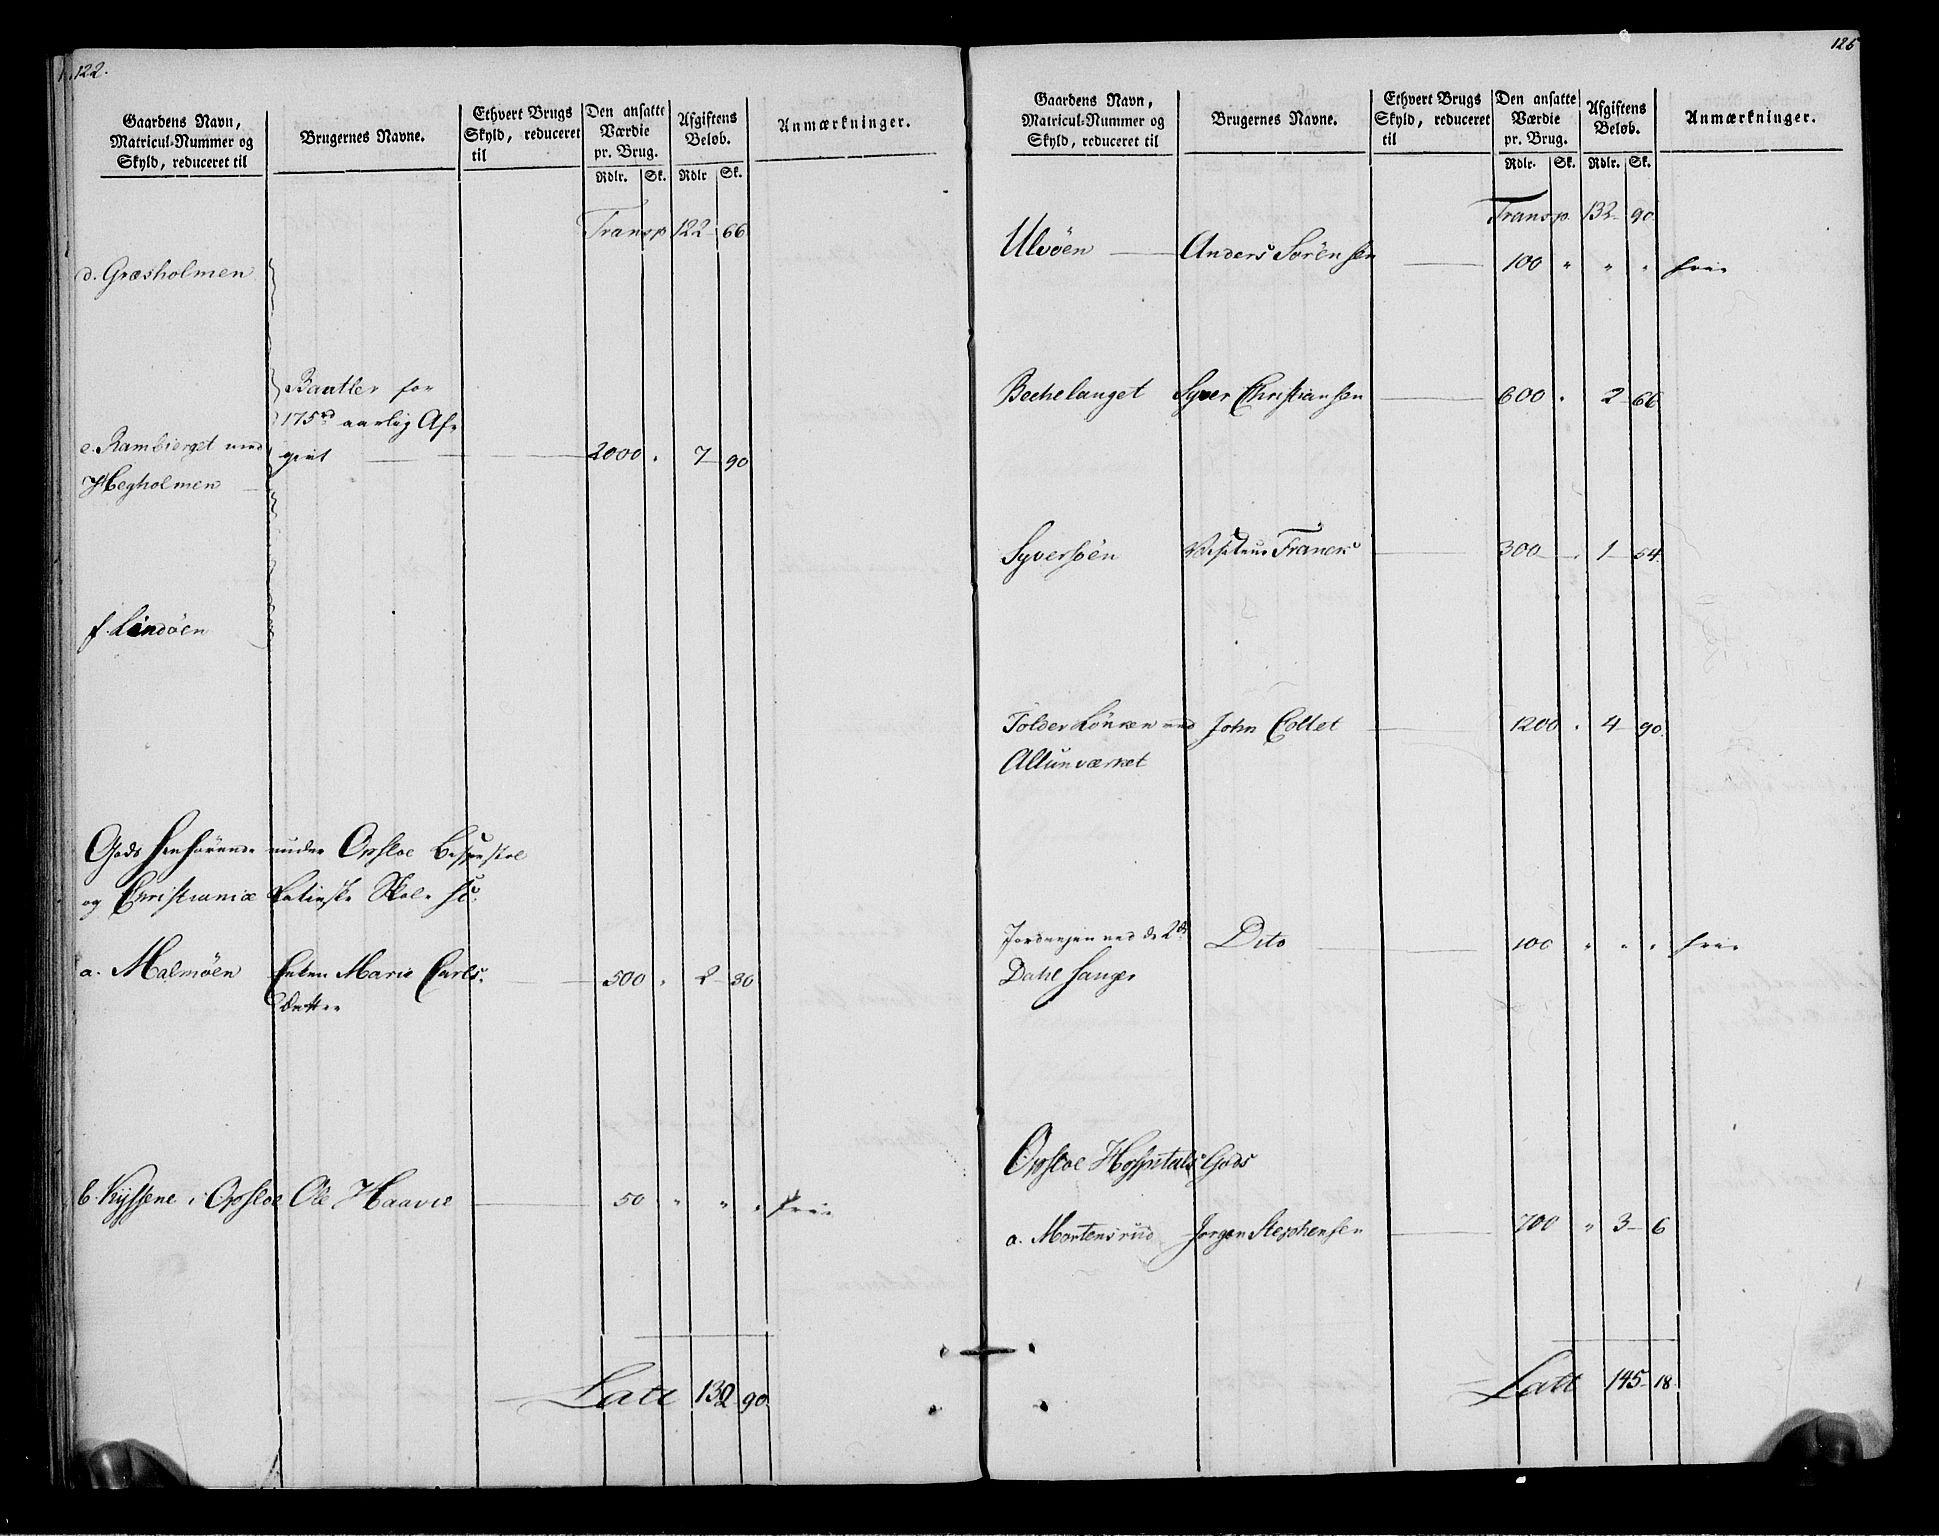 122.
Gaardens Navn,
Matricul-Nummer og
Skyld, reduceret til
Brugernes Navne.
Ethvert Brugs
Skyld, reduceret
til
Den ansatte
Værdie
pr. Brug.
Rdlr. Sk.
Afgiftens
Beløb.
Rdlr Sk.
Anmærkninger.
Transp 122 66
d. Græsholmen
Bautler for
175 rd aarlig Af-
e. Rambierget med givt 2000 " 7 90
Hegholmen
f. Lindöen
Gods henhørende under Opsloe Bispestol
og Christianiæ Latinske Skole sc.
a. Malmöen Enken Marie Carls- 500 " 2 30
Datter
b. Kyssene i Opsloe Ole Haavie 50 " " " frie
Latt 132 90
125
Gaardens Navn,
Matricul-Nummer og
Skyld, reduceret til
Brugernes Navne.
Ethvert Brugs
Skyld, reduceret
til
Den ansatte
Værdie
pr. Brug.
Rdlr. Sk.
Afgiftens
Beløb.
Rdlr. Sk.
Anmærkninger.
Transp. 132 90
Ulvöen Anders Sörensen 100 " " " frie
Bechelanget Syver Christiansen 600 " 2 66
Syversöen Franck 300 " 1 54
Tolder Lönnen med John Collet 1200 " 4 90
Allunværket
Dito 100 " " " frie
Dahl
Opsloe Hospitals Gods
a. Mortensrud Jörgen Stephensen 700 " 3 6
Latt 145 18